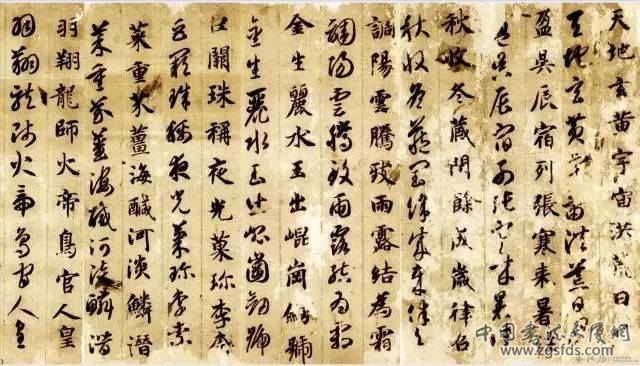 天地玄黃宇宙洪荒日月
天地玄黃宇宙洪荒日月
盈昃辰宿列張寒来暑
盈昃辰宿列張寒来暑往
秋收冬藏閏餘成歲律呂
秋收冬藏閏餘成歲律呂
調陽雲騰致雨露結為霜
調陽雲騰致雨露結為霜
金生麗水玉出崐崗劍號
金生麗水玉出崐崗劍號
巨闕珠稱夜光菓珍李柰
巨闕珠稱夜光菓珍李柰
菜重芥薑海醎河淡鱗潛
菜重芥薑海醎河淡鱗潛
羽翔龍師火帝鳥官人皇
羽翔龍師火帝鳥官人皇
中国书法大厦网
www.zgsfds.com